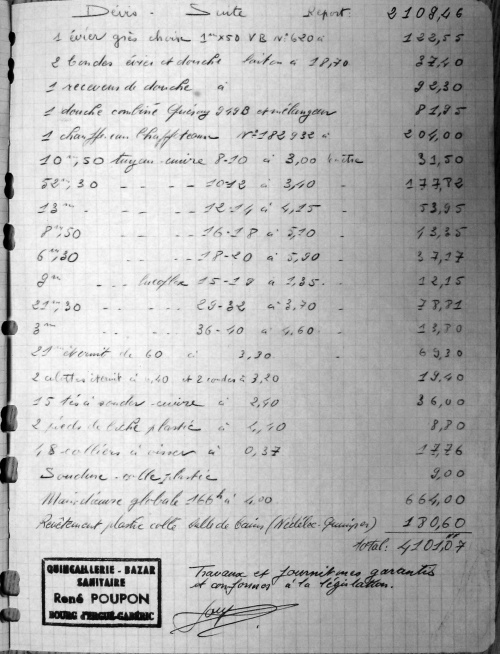 Devis - Suite Report: 2108,46
1 évier grès choix 1m x 50 VB N° 620 à 122,55
2 bondes évier et douche laiton à 18,70 37,40
1 receveur de douche à 92,30
1 douche combiné Quinoy 949B et mélangeur 81,95
1 chauffe-eau Chaffoteaux N° 182932 à 204,00
10m,50 tuyau cuivre 8-10 à 3,00 31,50
52m,30 - - - 10-12 à 3,40 - 177,82
13m - - - 12-14 à 4,15 - 53,95
8m,50 - - - 16-18 à 5,10 - 43,35
6m,30 - - - 18-20 à 5,90 - 37,17
9m - - - 15-19 à 1,35 - 12,15
21m,30 - - - 29-32 à 3,70 - 78,81
3m - - - 36-40 à 4,60 - 13,80
21m éternit de 60 à 3,30 - 69,30
2 culottes éternit à 4,40 et 2 coudes à 3,20 19,40
15 tés à souder cuivre à 2,40 36,00
2 pieds de biche plastic à 4,40 8,80
48 colliers à visser à 0,37 17,76
Soudure - colle plastic 9,00
Main d'œuvre globale 166h à 4,00 664,00
Revêtement plastic collé salle de bains (Nédélec-Quimper) 180,60
Total: 4101,07
Travaux et fournitures garantis
et conformes à la législation.
QUINCAILLERIE - BAZAR
SANITAIRE
René POUPON
BOURG d'ERGUÉ-GABÉRIC